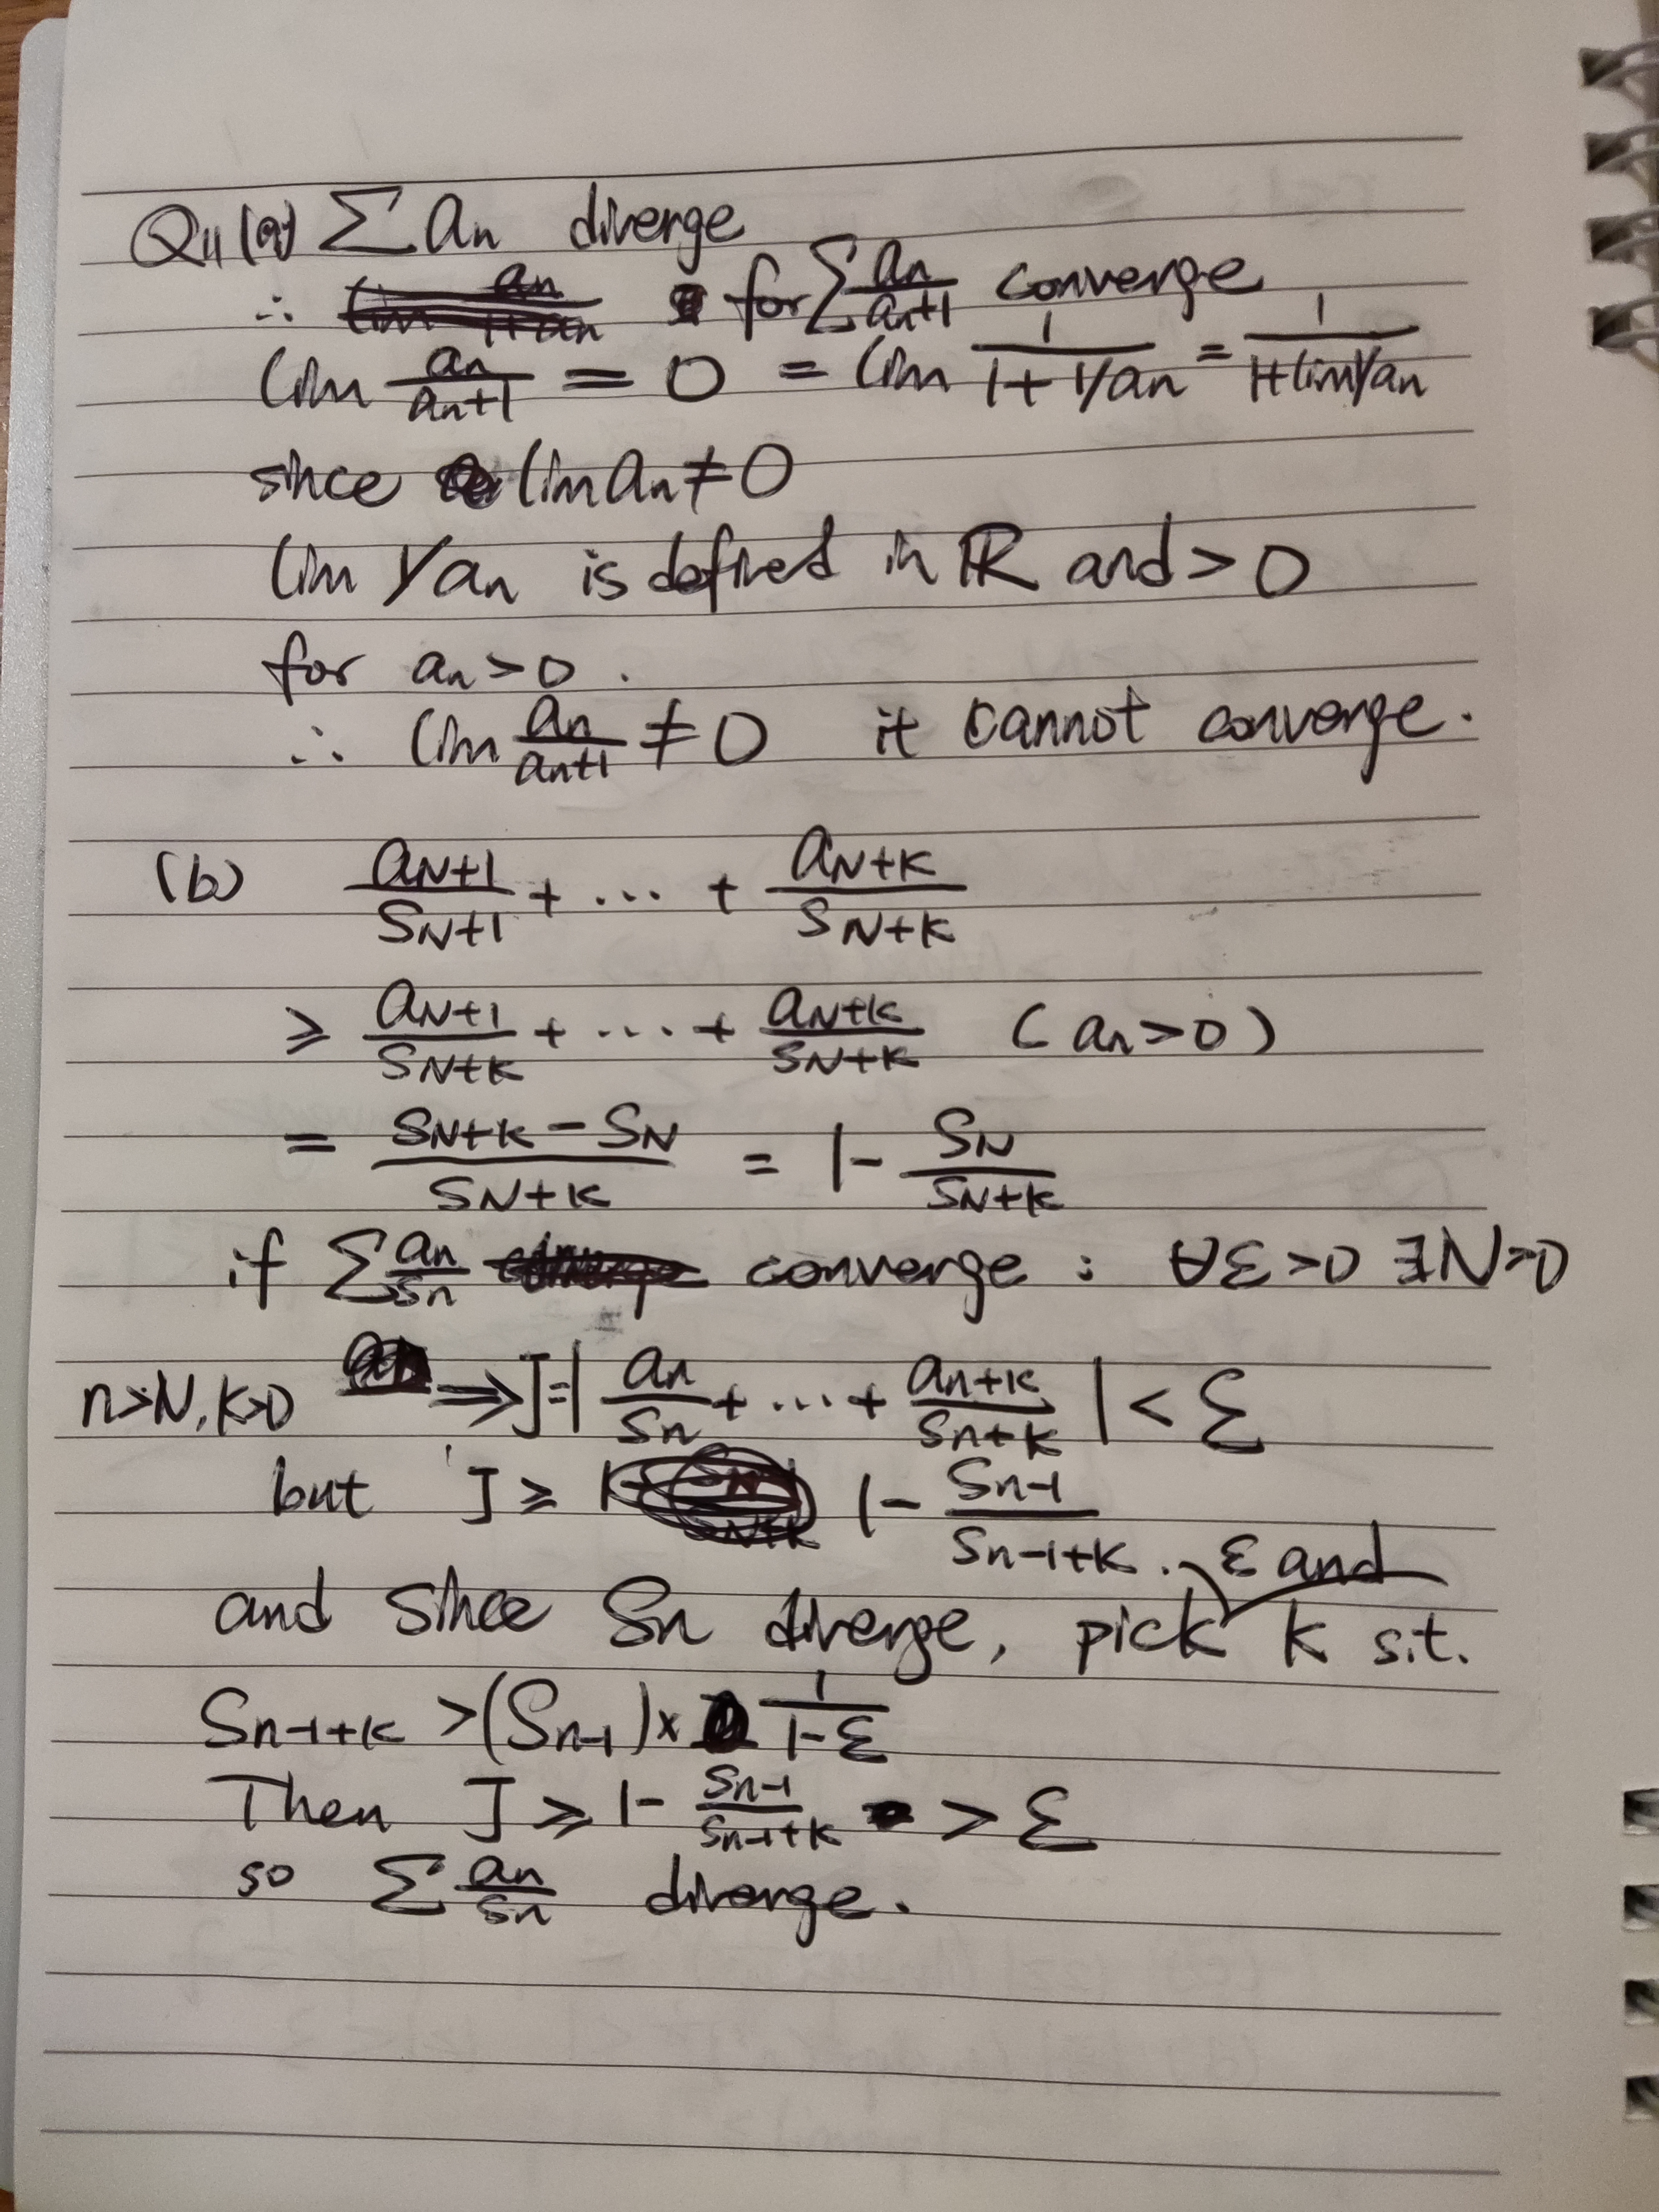 Q11 (a) ∑ an diverge
∴ for ∑ an/an+1 converge
lim an/an+1 = 0 = lim 1/1+1/an = 1/1+lim1/an
since lim an ≠ 0
lim 1/an is defined in ℝ and > 0
for an > 0 .
∴ lim an/an+1 ≠ 0 it cannot converge.
(b) aN+1/SN+1 + ... + aN+k/SN+k
≥ aN+1/SN+k + ... + aN+k/SN+k (an>0)
= SN+k - SN/SN+k = 1 - SN/SN+k
if ∑ an/Sn converge : ∀ε>0 ∃N>0
n>N, k>0 ⇒ J=| an/Sn + ... + an+k/Sn+k | < ε
but J ≥ 1 - Sn-1/Sn-1+k .
and since Sn diverge, pick ε and k s.t.
Sn-1+k > (Sn-1) × 1/1-ε
Then J ≥ 1 - Sn-1/Sn-1+k > ε
so ∑ an/Sn diverge.